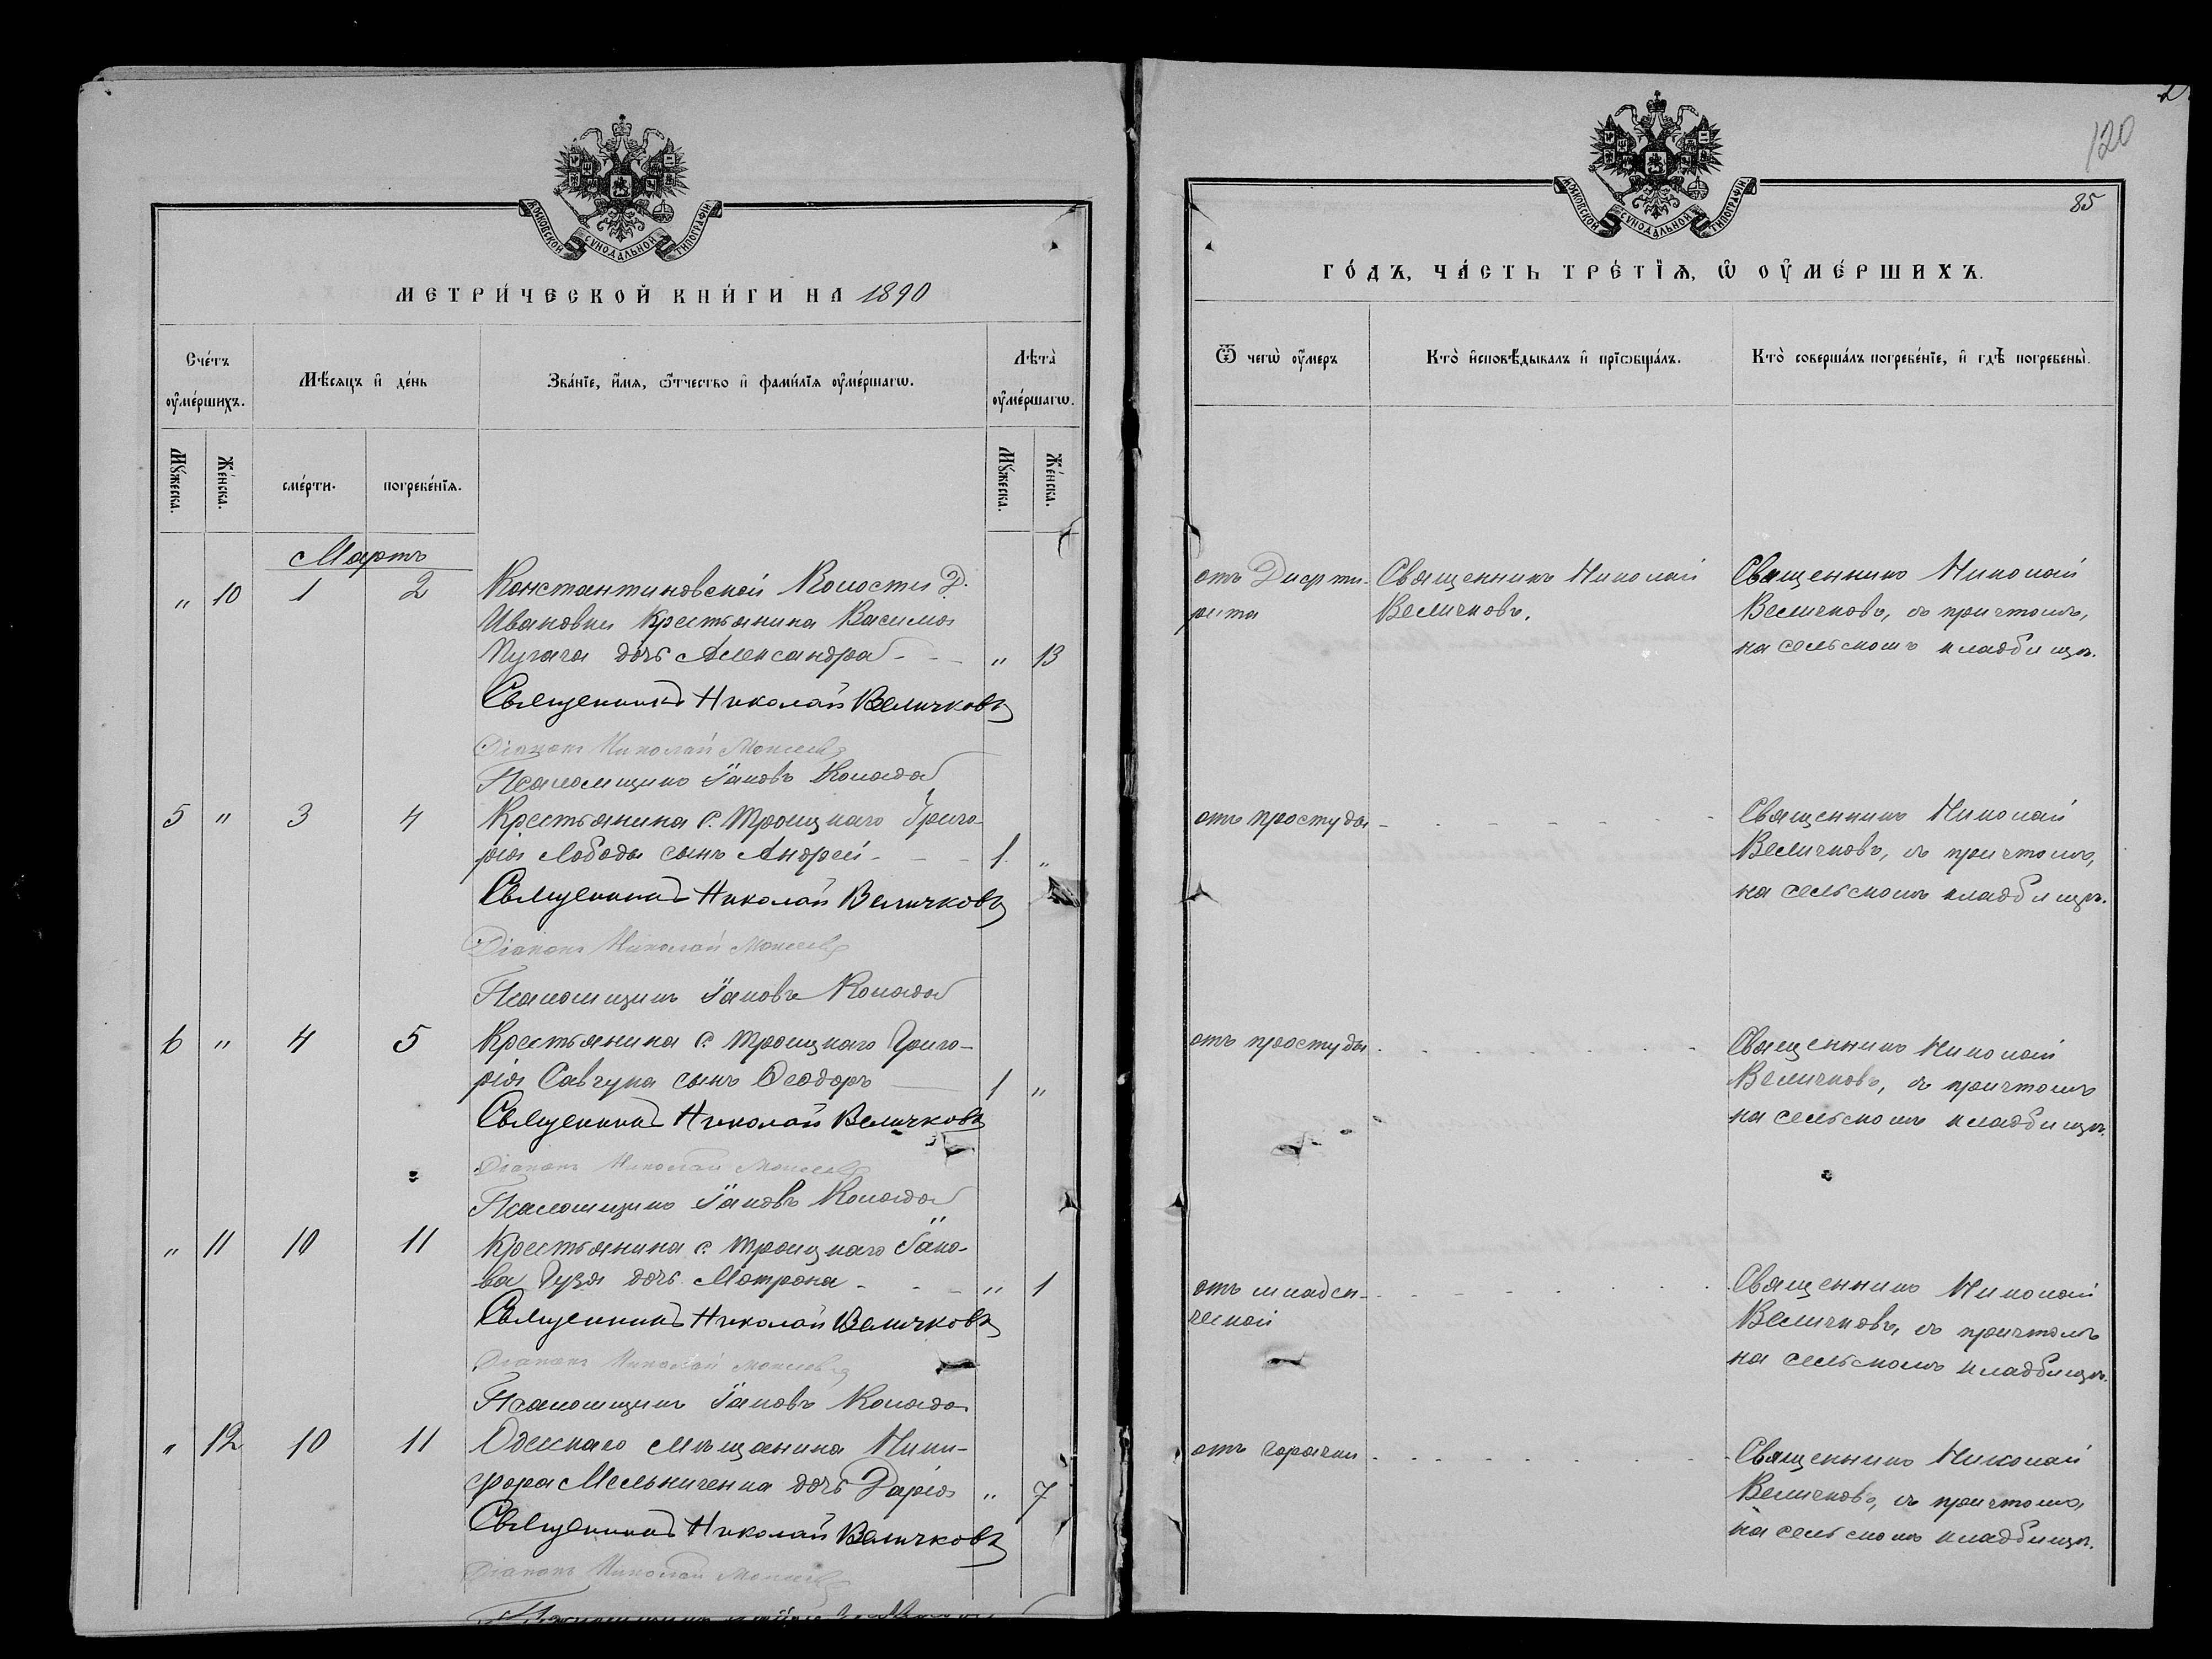 МОСКОВСКОЙ СѴНОДАЛЬНОЙ ТИПОГРАФІИ
МЕТРИ́ЧЕСКОЙ КНИ́ГИ НА 1890
Сче́тъ оу҆ме́ршихъ.
Мѣ́сяцъ и҆ де́нь
Зва́нїе, и҆́мя, ѻ҆́тчество и҆ фамилїя оу҆ме́ршагѡ.
Лѣта̀ оу҆ме́ршагѡ.
Мꙋ́жеска.
Же́нска.
сме́рти.
погребе́нїя.
Мꙋ́жеска.
Же́нска.
Мартъ
" 10 1 2 Константиновской Волости Д.
Ивановки крестьянина Василія
Пугача дочь Александра - - " 13
Священникъ Николай Величковъ
Діаконъ Николай Моисеевъ
Псаломщикъ Іаковъ Колода
5 " 3 4 Крестьянина с. Троицкаго Григо-
рія Лободы сынъ Андрей - - - 1. "
Священникъ Николай Величковъ
Діаконъ Николай Моисеевъ
Псаломщикъ Іаковъ Колода
6 " 4 5 Крестьянина с. Троицкаго Григо-
рія Савчука сынъ Ѳеодоръ 1 "
Священникъ Николай Величковъ
Діаконъ Николай Моисеевъ
Псаломщикъ Іаковъ Колода
" 11 10 11 Крестьянина с. Троицкаго Іако-
ва Гузя дочь Матрона - - - " 1
Священникъ Николай Величковъ
Діаконъ Николай Моисеевъ
Псаломщикъ Іаковъ Колода
" 12 10 11 Одесскаго мѣщанина Ники-
фора Мельниченка дочь Дарія " 7
Священникъ Николай Величковъ
Діаконъ Николай Моисеевъ
120
85
МОСКОВСКОЙ СѴНОДАЛЬНОЙ ТИПОГРАФІИ
ГО́ДЪ, ЧА́СТЬ ТРЕ́ТЇЯ, Ѡ҆ ОУ҆МЕ́РШИХЪ.
Ѿ чегѡ̀ оу҆́меръ
Кто̀ и҆сповѣ́дывалъ и҆ прїѡбща́лъ.
Кто̀ соверша́лъ погребе́нїе, и҆ гдѣ̀ погребены̀.
отъ Дифте- Священникъ Николай Священникъ Николай
рита Величковъ. Величковъ, съ причтомъ,
на сельскомъ кладбищѣ.
отъ простуды - - - - - - - - Священникъ Николай
Величковъ, съ причтомъ,
на сельскомъ кладбищѣ.
отъ простуды - - - - - - - - Священникъ Николай
Величковъ, съ причтомъ
на сельскомъ кладбищѣ.
отъ младен- - - - - - - - Священникъ Николай
ческой Величковъ, съ причтомъ
на сельскомъ кладбищѣ.
отъ горячки - - - - - - - - Священникъ Николай
Величковъ, съ причтомъ,
на сельскомъ кладбищѣ.